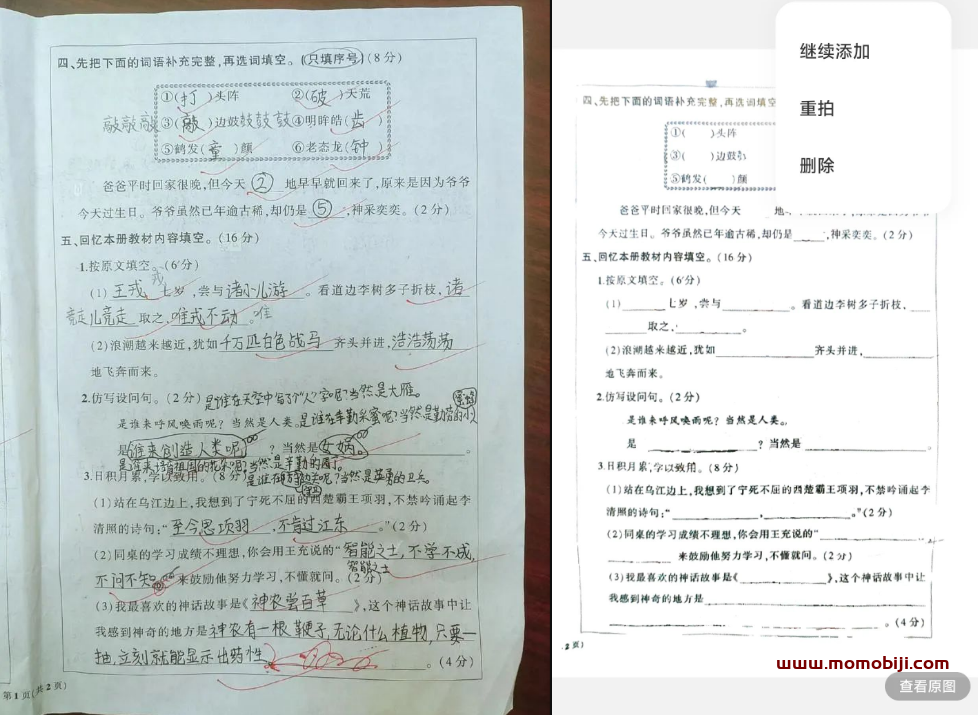 四、先把下面的词语补充完整,再选词填空。(只填序号)(8分)
①(打)头阵 ②(破)天荒
敲敲敲③(敲)边鼓鼓鼓鼓④明眸皓(齿)
⑤鹤发(童)颜 ⑥老态龙(钟)
爸爸平时回家很晚,但今天②地早早就回来了,原来是因为爷爷
今天过生日。爷爷虽然已年逾古稀,却仍是⑤,神采奕奕。(2分)
五、回忆本册教材内容填空。(16分)
1.按原文填空。(6分)
戎
(1)王戎七岁,尝与诸小儿游。看道边李树多子折枝,诸
儿竞走取之,唯戎不动。唯
(2)浪潮越来越近,犹如千万匹白色战马齐头并进,浩浩荡荡
地飞奔而来。
2.仿写设问句。(2分)是谁在天空中写了“人”字呢?当然是大雁。
是谁来呼风唤雨呢?当然是人类。是谁在辛勤采蜜呢?当然是勤劳的小
蜜蜂
是谁来创造人类呢?当然是女娲。
3.日积月累,学以致用。(8分)
(1)站在乌江边上,我想到了宁死不屈的西楚霸王项羽,不禁吟诵起李
清照的诗句:“至今思项羽,不肯过江东。”(2分)
(2)同桌的学习成绩不理想,你会用王充说的“智能之士,不学不成,
智能之士
不问不知”来鼓励他努力学习,不懂就问。(2分)
(3)我最喜欢的神话故事是《神农尝百草》,这个神话故事中让
我感到神奇的地方是神农有一根鞭子,无论什么植物,只要一
抽,立刻就能显示出药性。(4分)
第1页(共2页)
继续添加
重拍
删除
四、先把下面的词语补充完整,再选词填空
①( )头阵
③( )边鼓
⑤鹤发( )颜
爸爸平时回家很晚,但今天 地
今天过生日。爷爷虽然已年逾古稀,却仍是____,神采奕奕。(2分)
五、回忆本册教材内容填空。(16分)
1.按原文填空。(6分)
(1)______七岁,尝与__________。看道边李树多子折枝,__
______取之,________。
(2)浪潮越来越近,犹如__________齐头并进,________
地飞奔而来。
2.仿写设问句。(2分)
是谁来呼风唤雨呢?当然是人类。
是__________?当然是__________。
3.日积月累,学以致用。(8分)
(1)站在乌江边上,我想到了宁死不屈的西楚霸王项羽,不禁吟诵起李
清照的诗句:“__________,__________。”(2分)
(2)同桌的学习成绩不理想,你会用王充说的“__________
__________来鼓励他努力学习,不懂就问。(2分)
(3)我最喜欢的神话故事是《__________》,这个神话故事中让
我感到神奇的地方是____________________
____________________。(4分)
2页)
www.momobiji.com
查看原图